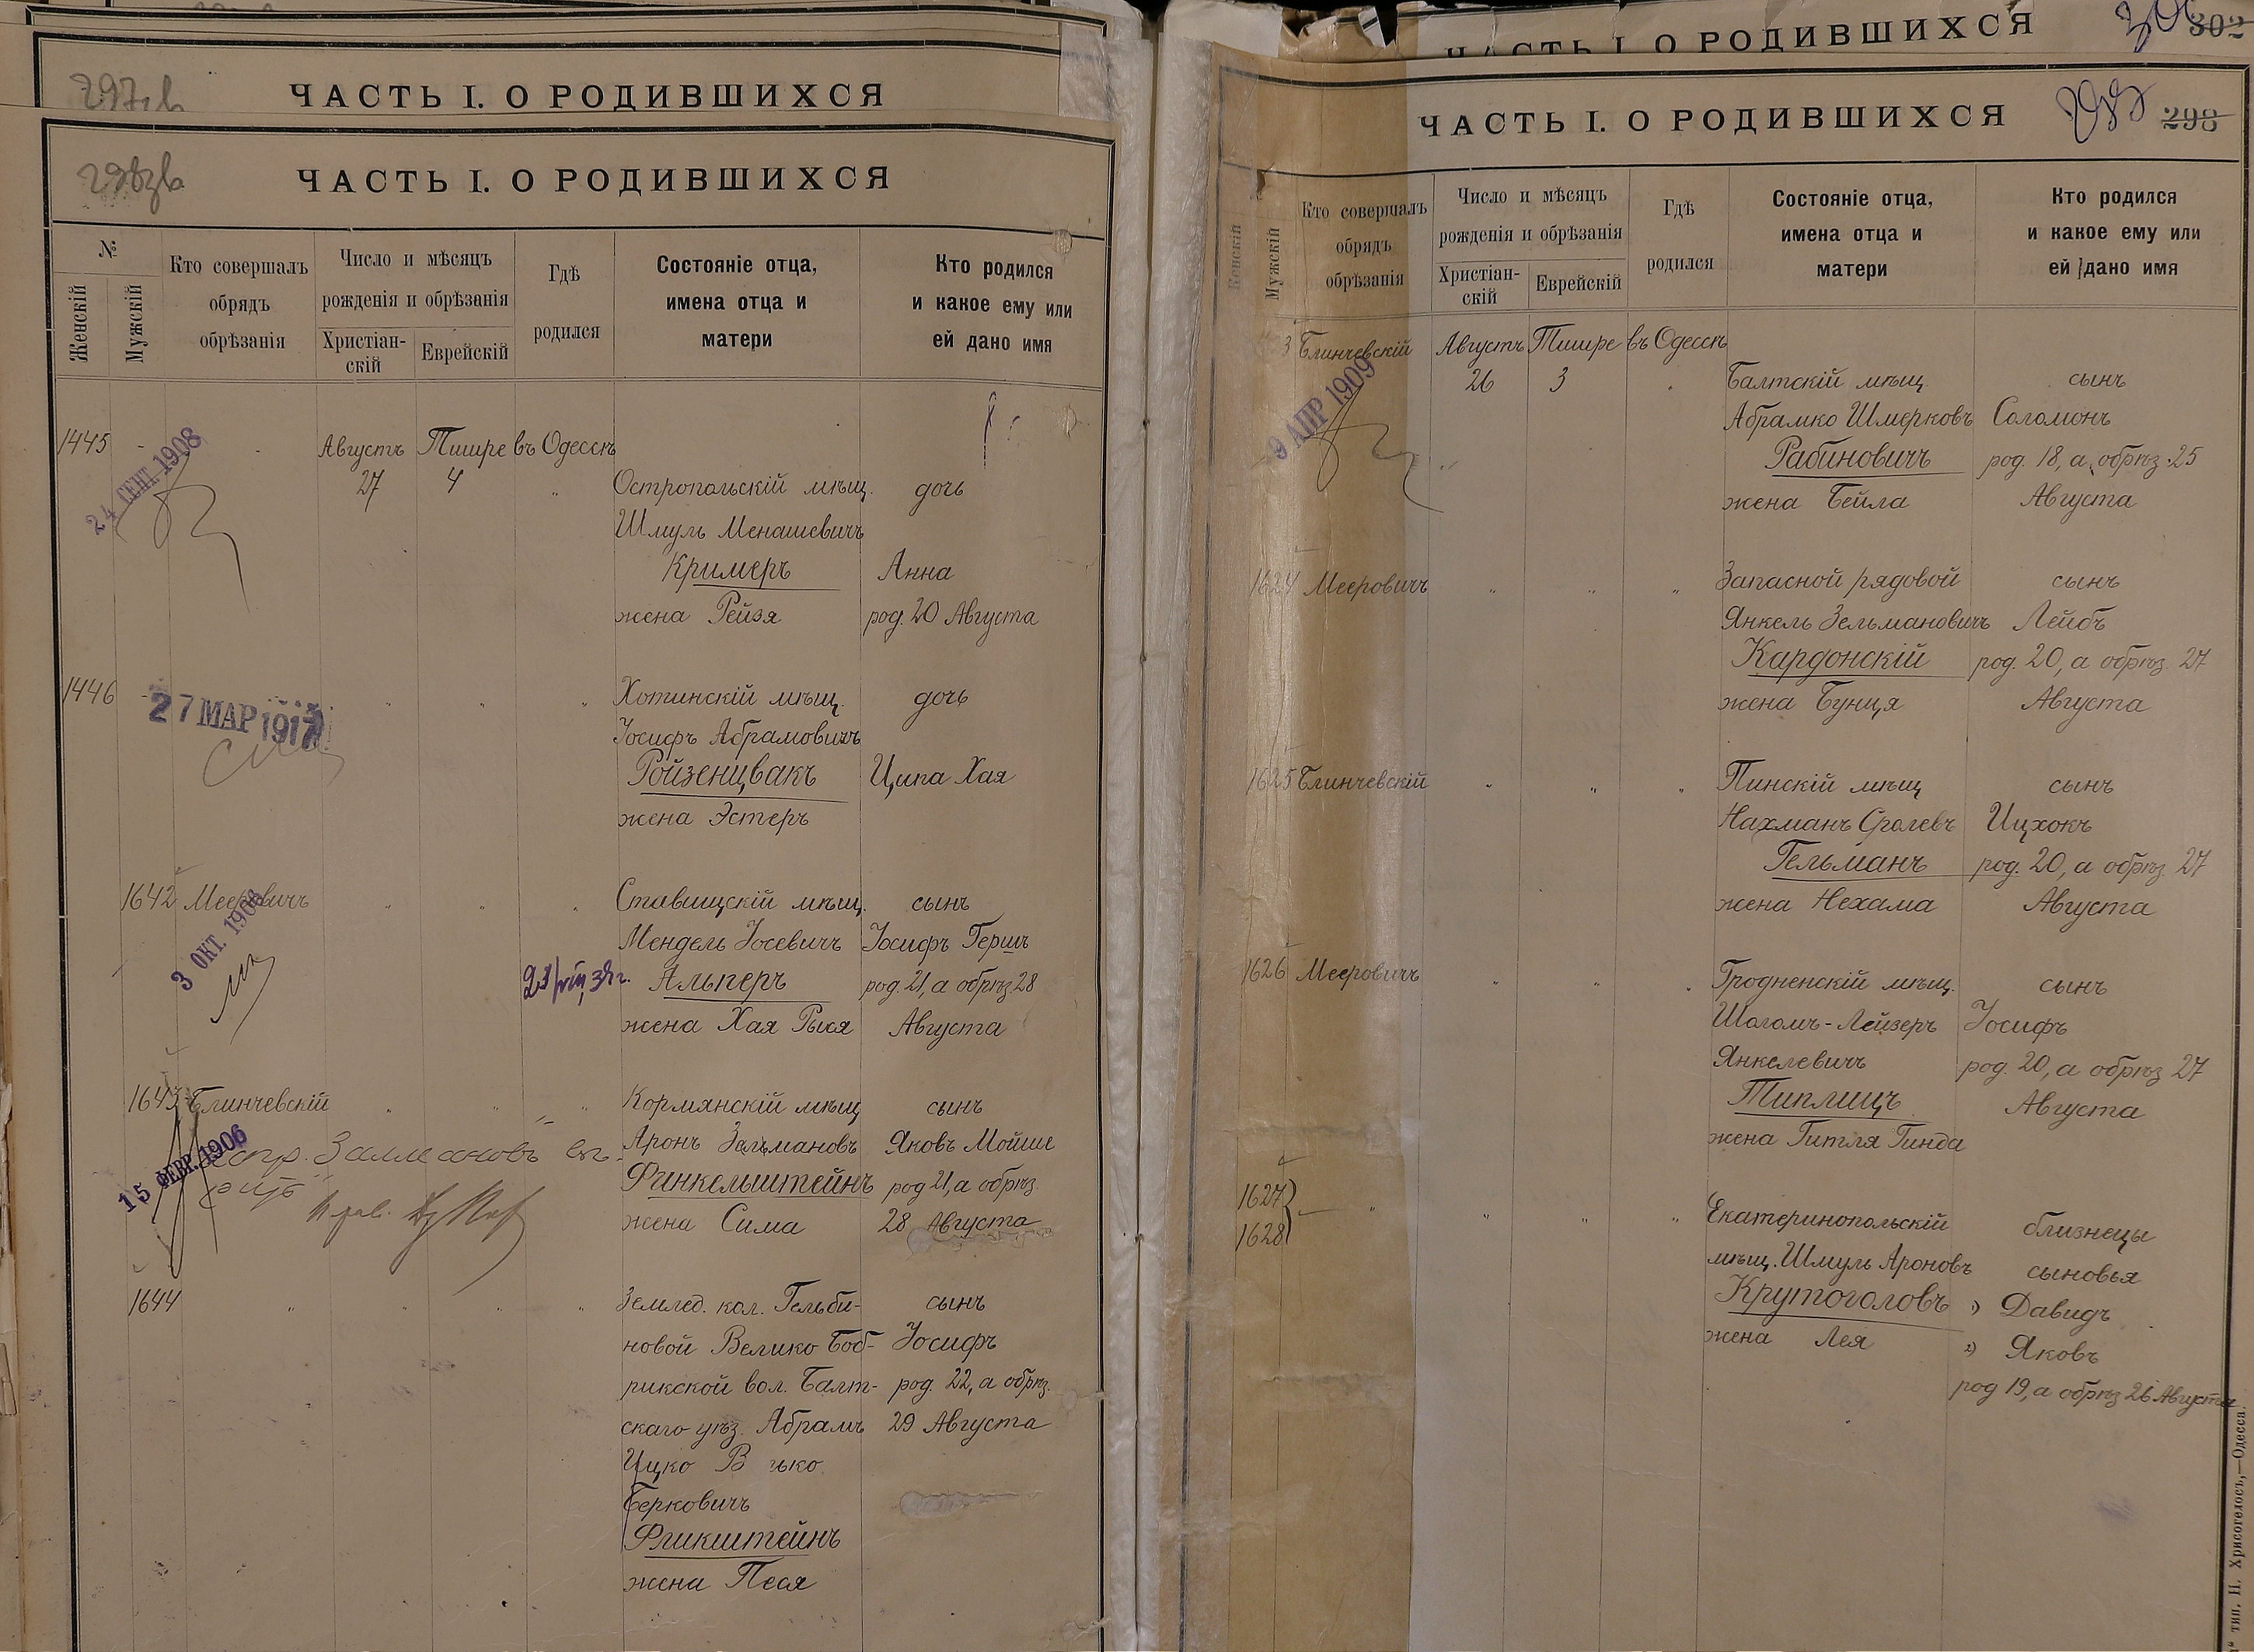 ЧАСТЬ I. О РОДИВШИХСЯ
ЧАСТЬ I. О РОДИВШИХСЯ
№
Женскій
Мужскій
Кто совершалъ
обрядъ
обрѣзанія
Число и мѣсяцъ
рожденія и обрѣзанія
Христіан-
скій
Еврейскій
Гдѣ
родился
Состояніе отца,
имена отца и
матери
Кто родился
и какое ему или
ей дано имя
1445
24 СЕНТ. 1908
Августъ Тишре въ Одессѣ
27 4 "
Остропольскій мѣщ. дочь
Шмуль Менашевичъ
Кримеръ Анна
жена Рейзя род. 20 Августа
1446
27 МАР 1917
Хотинскій мѣщ. дочь
Іосифъ Абрамовичъ
Ройзенцвакъ Ципа Хая
жена Эстеръ
1642 Мееровичъ
3 ОКТ. 1908
Ставищскій мѣщ. сынъ
Мендель Іосевичъ Іосифъ Гершъ
Альперъ род. 21, а обрѣз 28
жена Хая Рыся Августа
1643 Блинчевскій
15 ФЕВР. 1906
Кормянскій мѣщ сынъ
Аронъ Зельмановъ Яковъ Мойше
Финкельштейнъ род 21, а обрѣз.
жена Сима 28 Августа
1644
Землед. кол. Гельби- сынъ
новой Велико Боб- Іосифъ
рикской вол. Балт- род. 22, а обрѣз.
скаго уѣз. Абрамъ 29 Августа
Ицко
Берковичъ
Фликштейнъ
жена Песя
ЧАСТЬ I. О РОДИВШИХСЯ
302
ЧАСТЬ I. О РОДИВШИХСЯ
298
Женскій
Мужскій
Кто совершалъ
обрядъ
обрѣзанія
Число и мѣсяцъ
рожденія и обрѣзанія
Христіан-
скій
Еврейскій
Гдѣ
родился
Состояніе отца,
имена отца и
матери
Кто родился
и какое ему или
ей дано имя
3 Блинчевскій Августъ Тишре въ Одессѣ
26 3
9 АПР 1909
Балтскій мѣщ. сынъ
Абрамко Шмерковъ Соломонъ
Рабиновичъ род. 18, а обрѣз. 25
жена Бейла Августа
1624 Мееровичъ
Запасной рядовой сынъ
Янкель Зельмановичъ Лейбъ
Кардонскій род. 20, а обрѣз. 27
жена Бунця Августа
1625 Блинчевскій
Пинскій мѣщ сынъ
Нахманъ Сролевъ Ицхокъ
Гельманъ род. 20, а обрѣз. 27
жена Нехама Августа
1626 Мееровичъ
Гродненскій мѣщ. сынъ
Шоломъ-Лейзеръ Іосифъ
Янкелевичъ род. 20, а обрѣз 27
Типлицъ Августа
жена Гитля Гинда
1627
1628
Екатеринопольскій близнецы
мѣщ. Шмуль Ароновъ сыновья
Крутоголовъ 1) Давидъ
жена Лея 2) Яковъ
род 19, а обрѣз 26 Августа
тип. П. Хрисогелосъ,—Одесса.